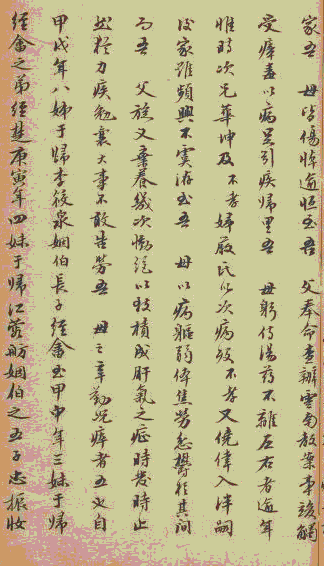 家吾 母皆傷悼逾恒至吾 父奉命查辦雲南教案事竣觸
受瘴毒以病足引疾歸里吾 母躬侍湯藥不離左右者逾年
惟時次兄華坤及不孝婦嚴氏以次病歿不孝又僥倖入泮嗣
後家難頻興不實 吾 母以病軀弱倖焦勞憂鬱於其間
而吾 父旋又棄養幾次慟絕以致積成肝氣之症時發時止
然於力疾勉襄大事不敢告勞吾 母之辛勤况瘁者五文自
甲戌年八姊于歸李筱泉姻伯長子經畬至甲申年三妹于歸
經畬之弟經楚庚寅年四妹于歸江霄舫姻伯之五子忠振妝